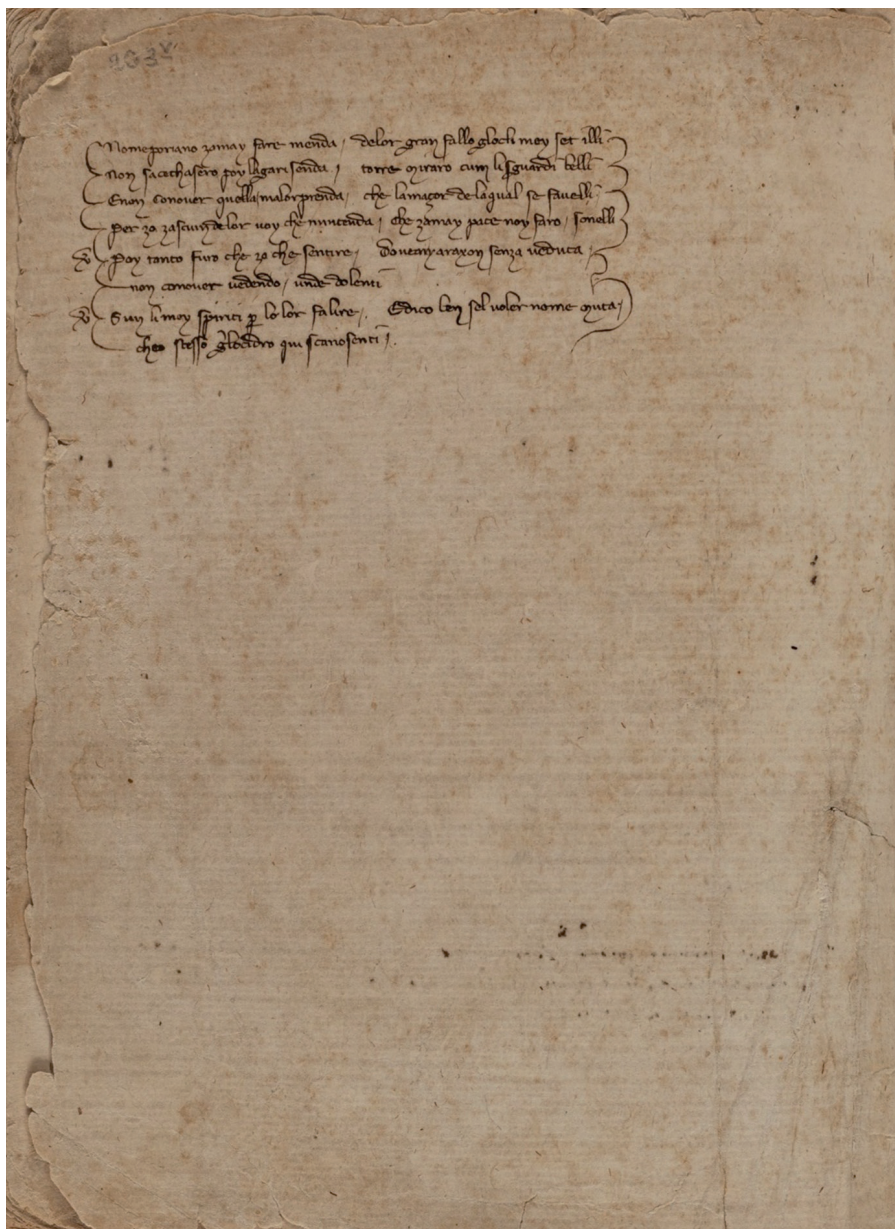 203v.
Nomeporiano zamay fare menda, delor gran fallo glocli mey set illi
Non sacechasero poy lagarisenda, torre miraro cum li sguardi belli
Enon conover quella, malor prenda, che lamaçor delaqual se favelli
Per zo zascun delor voy che mintenda, che zamay pace noy faro, sonelli
Poy tanto furo che zo che sentire, doveany araxon senza veduta,
non conover vedendo, unde dolenti
Sun li mey spiriti p lo lor falire, Edico ben sel voler nome muta,
cheo stesso gl ocidro qui scanosenti